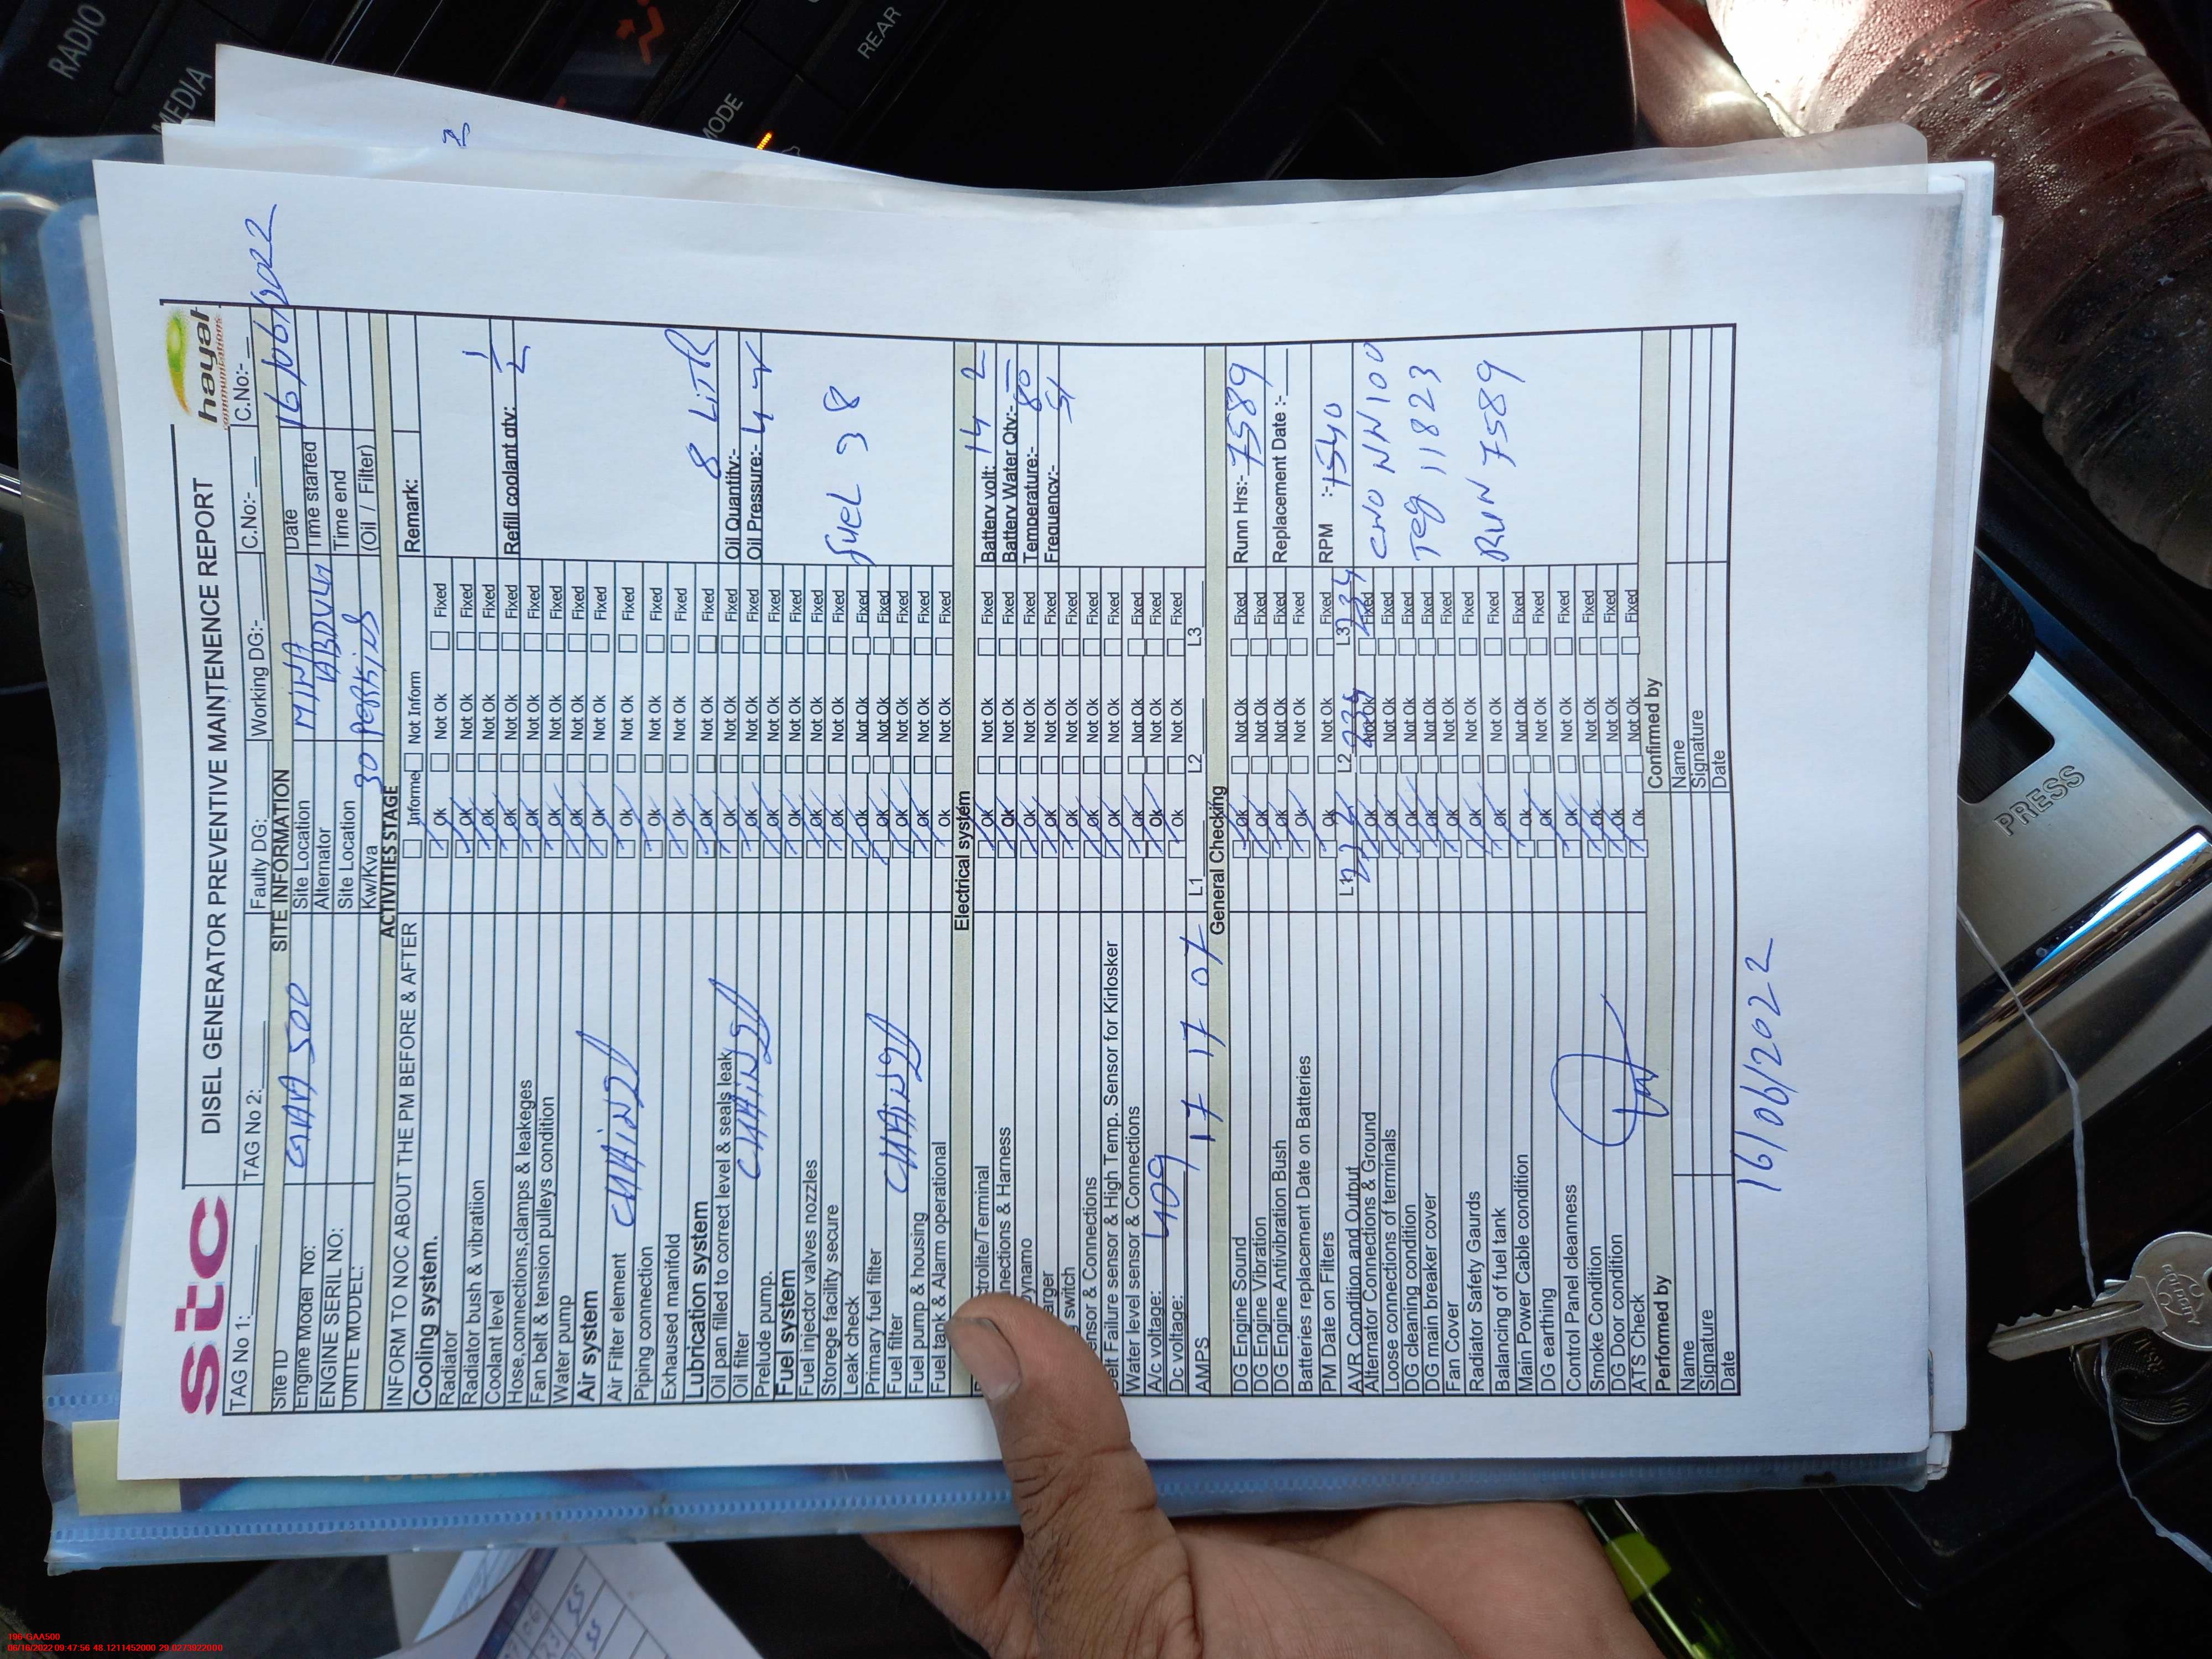 stc
DISEL GENERATOR PREVENTIVE MAINTENENCE REPORT
hayat
communications
TAG No 1: TAG No 2: Faulty DG: Working DG:- C.No:- C.No:-
SITE INFORMATION
Site ID
Engine Model No: Site Location MINA Date 16/06/2022
ENGINE SERIL NO: Alternator ABDULLA Time started
UNITE MODEL: Site Location Time end
Kw/Kva 30 PERKINS (Oil / Filter)
ACTIVITIES STAGE
INFORM TO NOC ABOUT THE PM BEFORE & AFTER Informed Not Inform Remark:
Cooling system.
Radiator Ok Not Ok Fixed
Radiator bush & vibratiion Ok Not Ok Fixed
Coolant level Ok Not Ok Fixed 1/2
Hose,connections,clamps & leakeges Ok Not Ok Fixed Refill coolant qty:
Fan belt & tension pulleys condition Ok Not Ok Fixed
Water pump Ok Not Ok Fixed
Air system Ok Not Ok Fixed
Air Filter element Ok Not Ok Fixed
Piping connection Ok Not Ok Fixed
Exhaused manifold Ok Not Ok Fixed
Lubrication system Ok Not Ok Fixed 8 LITR
Oil pan filled to correct level & seals leak Ok Not Ok Fixed Oil Quantity:-
Oil filter Ok Not Ok Fixed Oil Pressure:-
Prelude pump. Ok Not Ok Fixed
Fuel system Ok Not Ok Fixed
Fuel injector valves nozzles Ok Not Ok Fixed
Storege facility secure Ok Not Ok Fixed
Leak check Ok Not Ok Fixed
Primary fuel filter Ok Not Ok Fixed
Fuel filter Ok Not Ok Fixed
Fuel pump & housing Ok Not Ok Fixed
Fuel tank & Alarm operational Ok Not Ok Fixed
Electrical system
trolite/Terminal Ok Not Ok Fixed Battery volt: 14 2
nections & Harness Ok Not Ok Fixed Battery Water Qty:-
ynamo Ok Not Ok Fixed Temperature:- 80
arger Ok Not Ok Fixed Frequency:- 51
switch Ok Not Ok Fixed
ensor & Connections Ok Not Ok Fixed
elt Failure sensor & High Temp. Sensor for Kirlosker Ok Not Ok Fixed
Water level sensor & Connections Ok Not Ok Fixed
A/c voltage: 409 Ok Not Ok Fixed
Dc voltage: Ok Not Ok Fixed
AMPS 17 17 07 L1 L2 L3
General Checking
DG Engine Sound Ok Not Ok Fixed Runn Hrs:- 7589
DG Engine Vibration Ok Not Ok Fixed
DG Engine Antivibration Bush Ok Not Ok Fixed Replacement Date :-
Batteries replacement Date on Batteries Ok Not Ok Fixed
PM Date on Filters Ok Not Ok Fixed RPM :- 1540
AVR Condition and Output L1 L2 234 L3 234
Alternator Connections & Ground Ok Not Ok Fixed
Loose connections of terminals Ok Not Ok Fixed
DG cleaning condition Ok Not Ok Fixed
DG main breaker cover Ok Not Ok Fixed 11823
Fan Cover Ok Not Ok Fixed
Radiator Safety Gaurds Ok Not Ok Fixed
Balancing of fuel tank Ok Not Ok Fixed RUN 7589
Main Power Cable condition Ok Not Ok Fixed
DG earthing Ok Not Ok Fixed
Control Panel cleanness Ok Not Ok Fixed
Smoke Condition Ok Not Ok Fixed
DG Door condition Ok Not Ok Fixed
ATS Check Ok Not Ok Fixed
Performed by Confirmed by
Name Name
Signature Signature
Date Date
16/06/2022
RADIO
MEDIA
MODE
REAR
PRESS
196-GAA500
06/16/2022 09:47:56 48.1211452000 29.0273922000